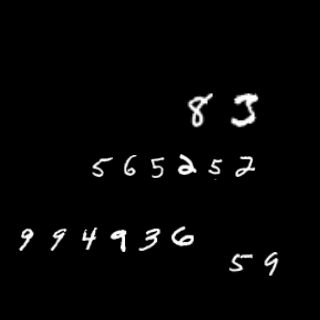 83
565252
994936
59